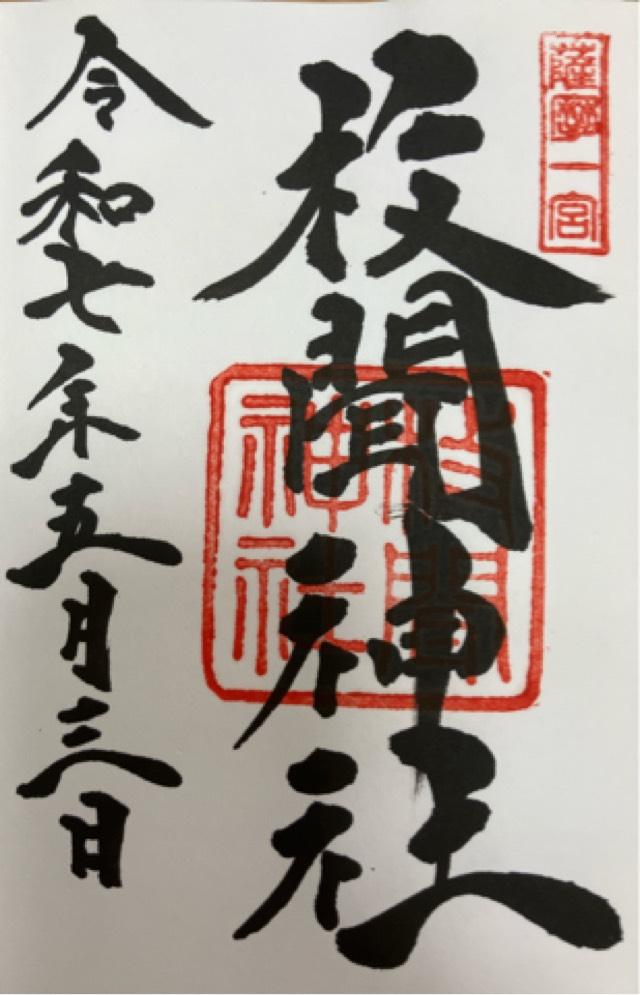 薩摩一宮
枚聞神社
枚聞
神社
令和七年五月三日